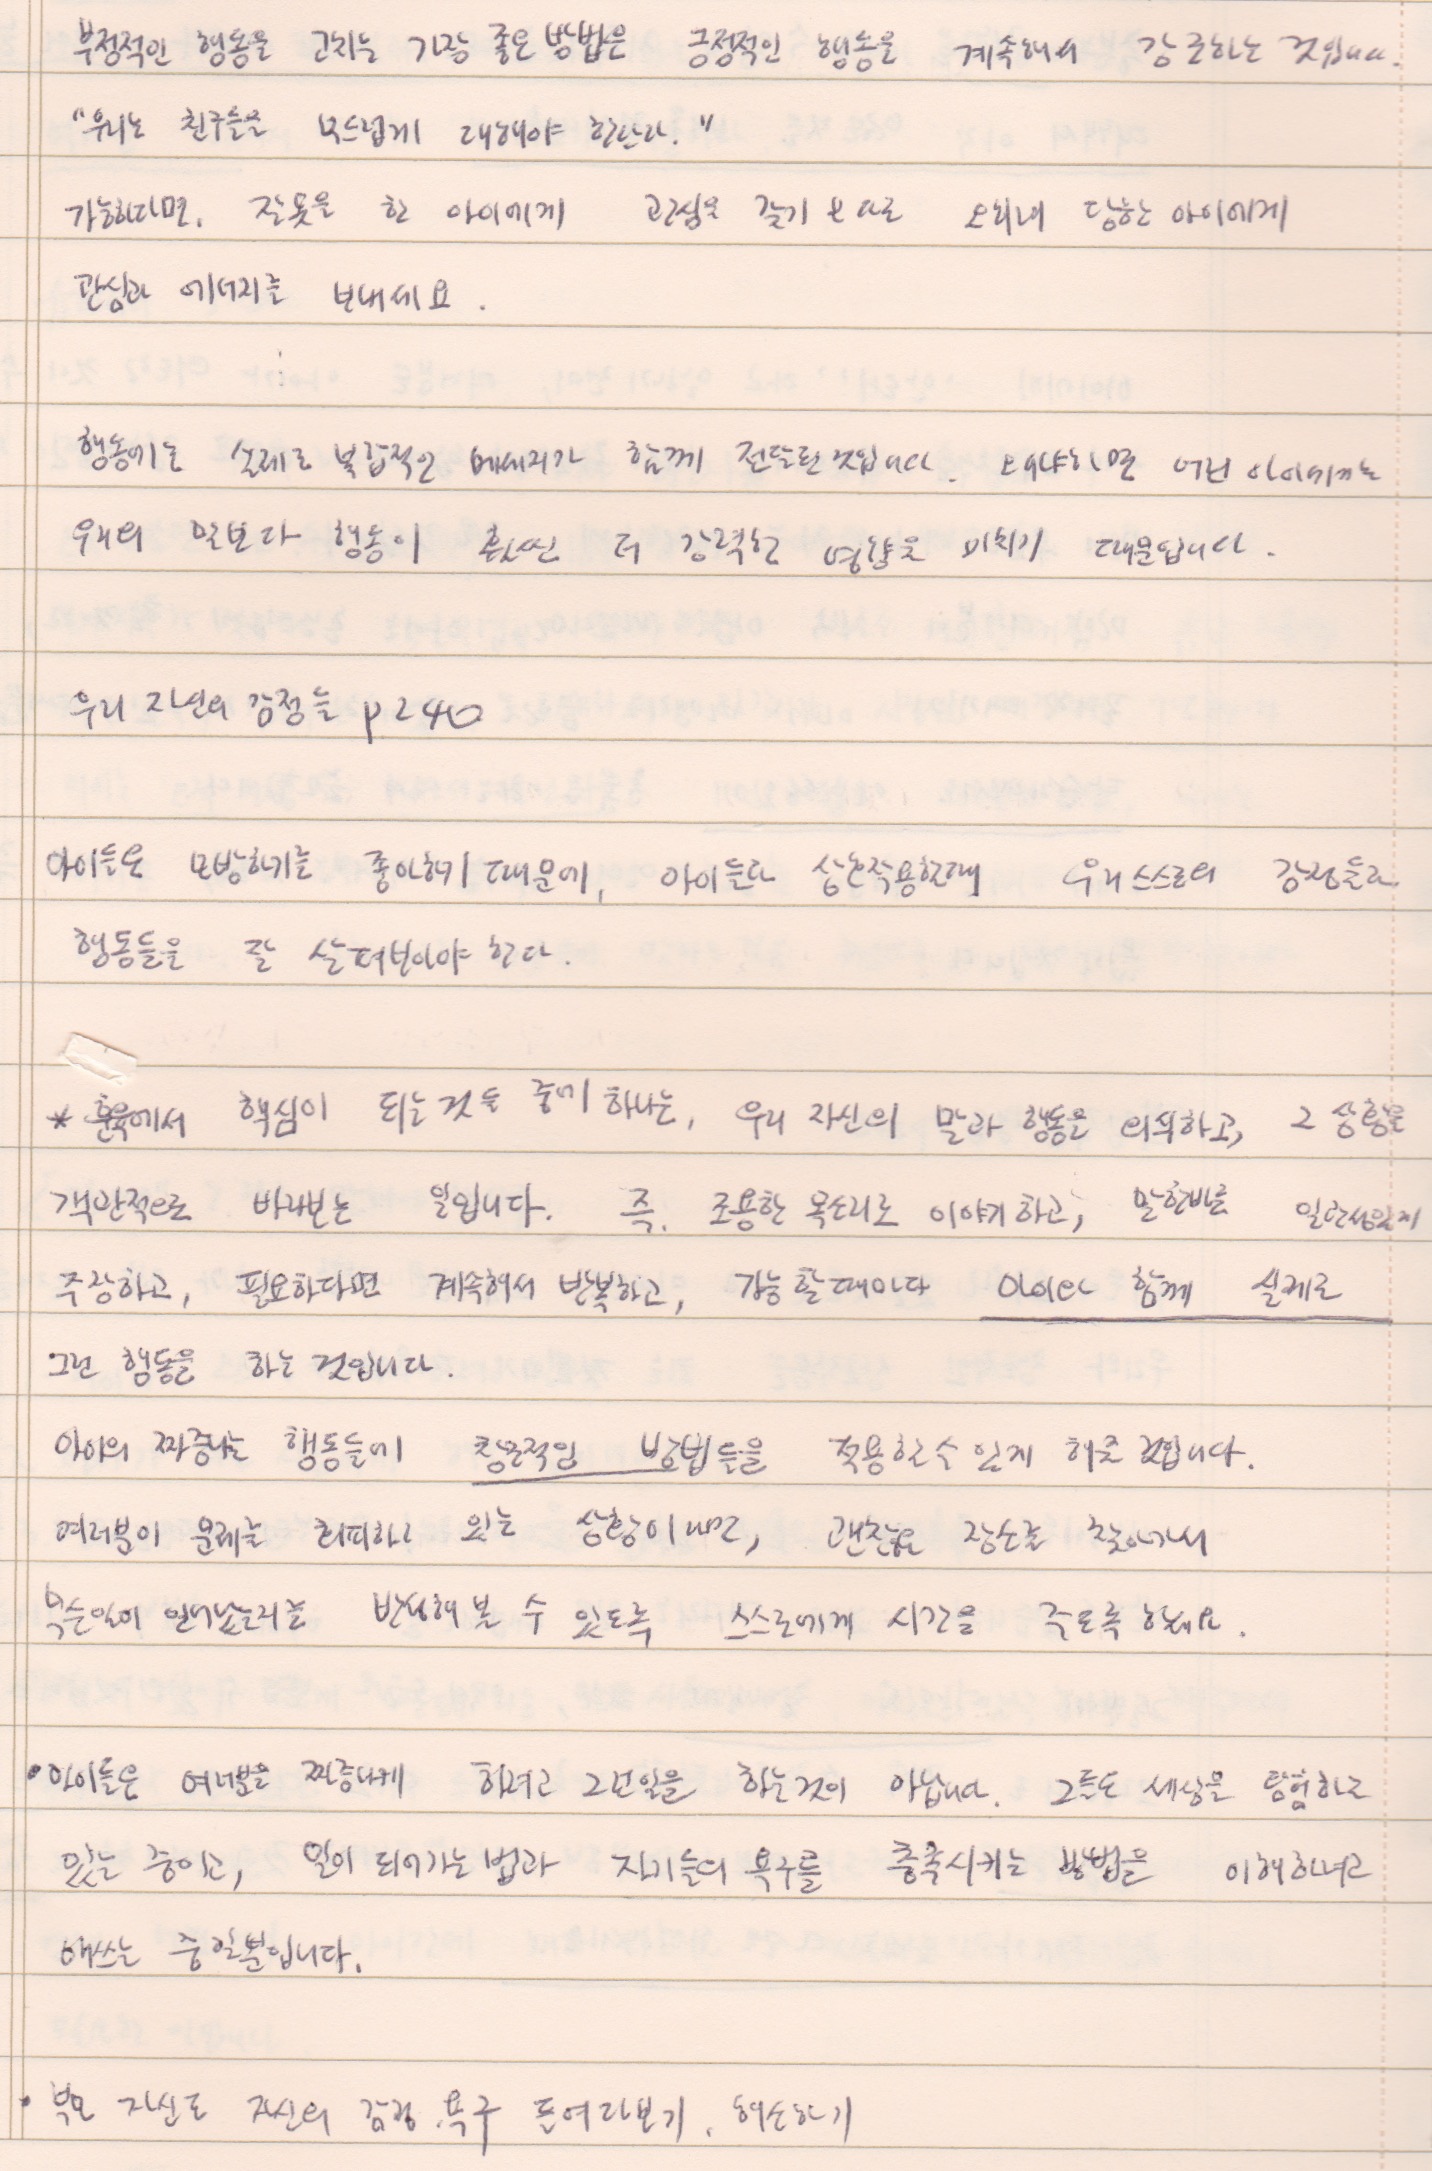 부정적인 행동을 고치는 가장 좋은 방법은 긍정적인 행동을 계속해서 강조하는 것입니다.
"우리는 친구들을 부드럽게 대해야 한단다."
가능하다면, 잘못을 한 아이에게 관심을 갖기 보다는 오히려 당한 아이에게
관심과 에너지를 보내세요.
행동에는 실제로 복합적인 메세지가 함께 전달된 것입니다. 왜냐하면 어린 아이에게는
우리의 말보다 행동이 훨씬 더 강력한 영향을 미치기 때문입니다.
우리 자신의 감정들 p240
아이들은 모방하기를 좋아하기 때문에, 아이들과 상호작용할때 우리 스스로의 감정들과
행동들을 잘 살펴보아야 한다.
* 훈육에서 핵심이 되는 것들 중에 하나는, 우리 자신의 말과 행동을 의식하고, 그 상황을
객관적으로 바라보는 일입니다. 즉, 조용한 목소리로 이야기하고, 말한바를 일관성있게
주장하고, 필요하다면 계속해서 반복하고, 가능할때마다 아이와 함께 실제로
그런 행동을 하는 것입니다.
아이의 짜증나는 행동들에 창조적인 방법들을 적용할 수 있게 해줄 것입니다.
여러분이 문제를 회피하고 있는 상황이라면, 괜찮은 장소를 찾아가서
무슨일이 일어났는지를 반성해 볼 수 있도록 스스로에게 시간을 주도록 하세요.
• 아이들은 여러분을 짜증나게 하려고 그런일을 하는것이 아닙니다. 그들도 세상을 탐험하고
있는 중이고, 일이 되어가는 법과 자기들의 욕구를 충족시키는 방법을 이해하려고
애쓰는 중일뿐입니다.
• 부모 자신도 자신의 감정, 욕구 들여다보기, 해소하기